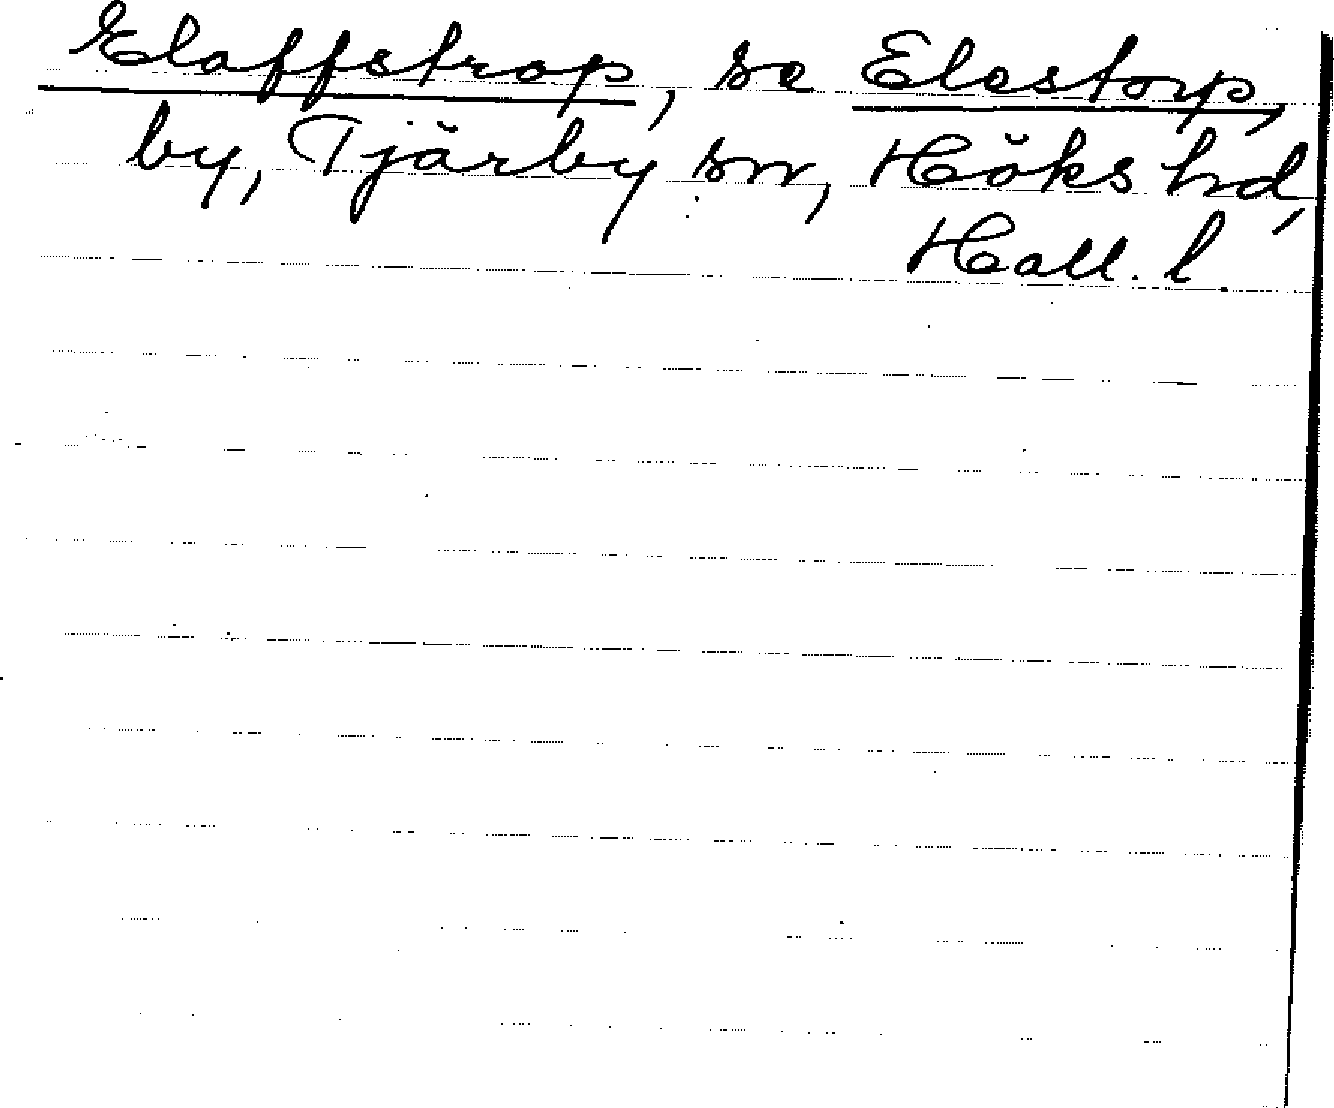 Elaffstrop, se Elestorp,
by, Tjärby sn, Höks hd,
Hall. l.